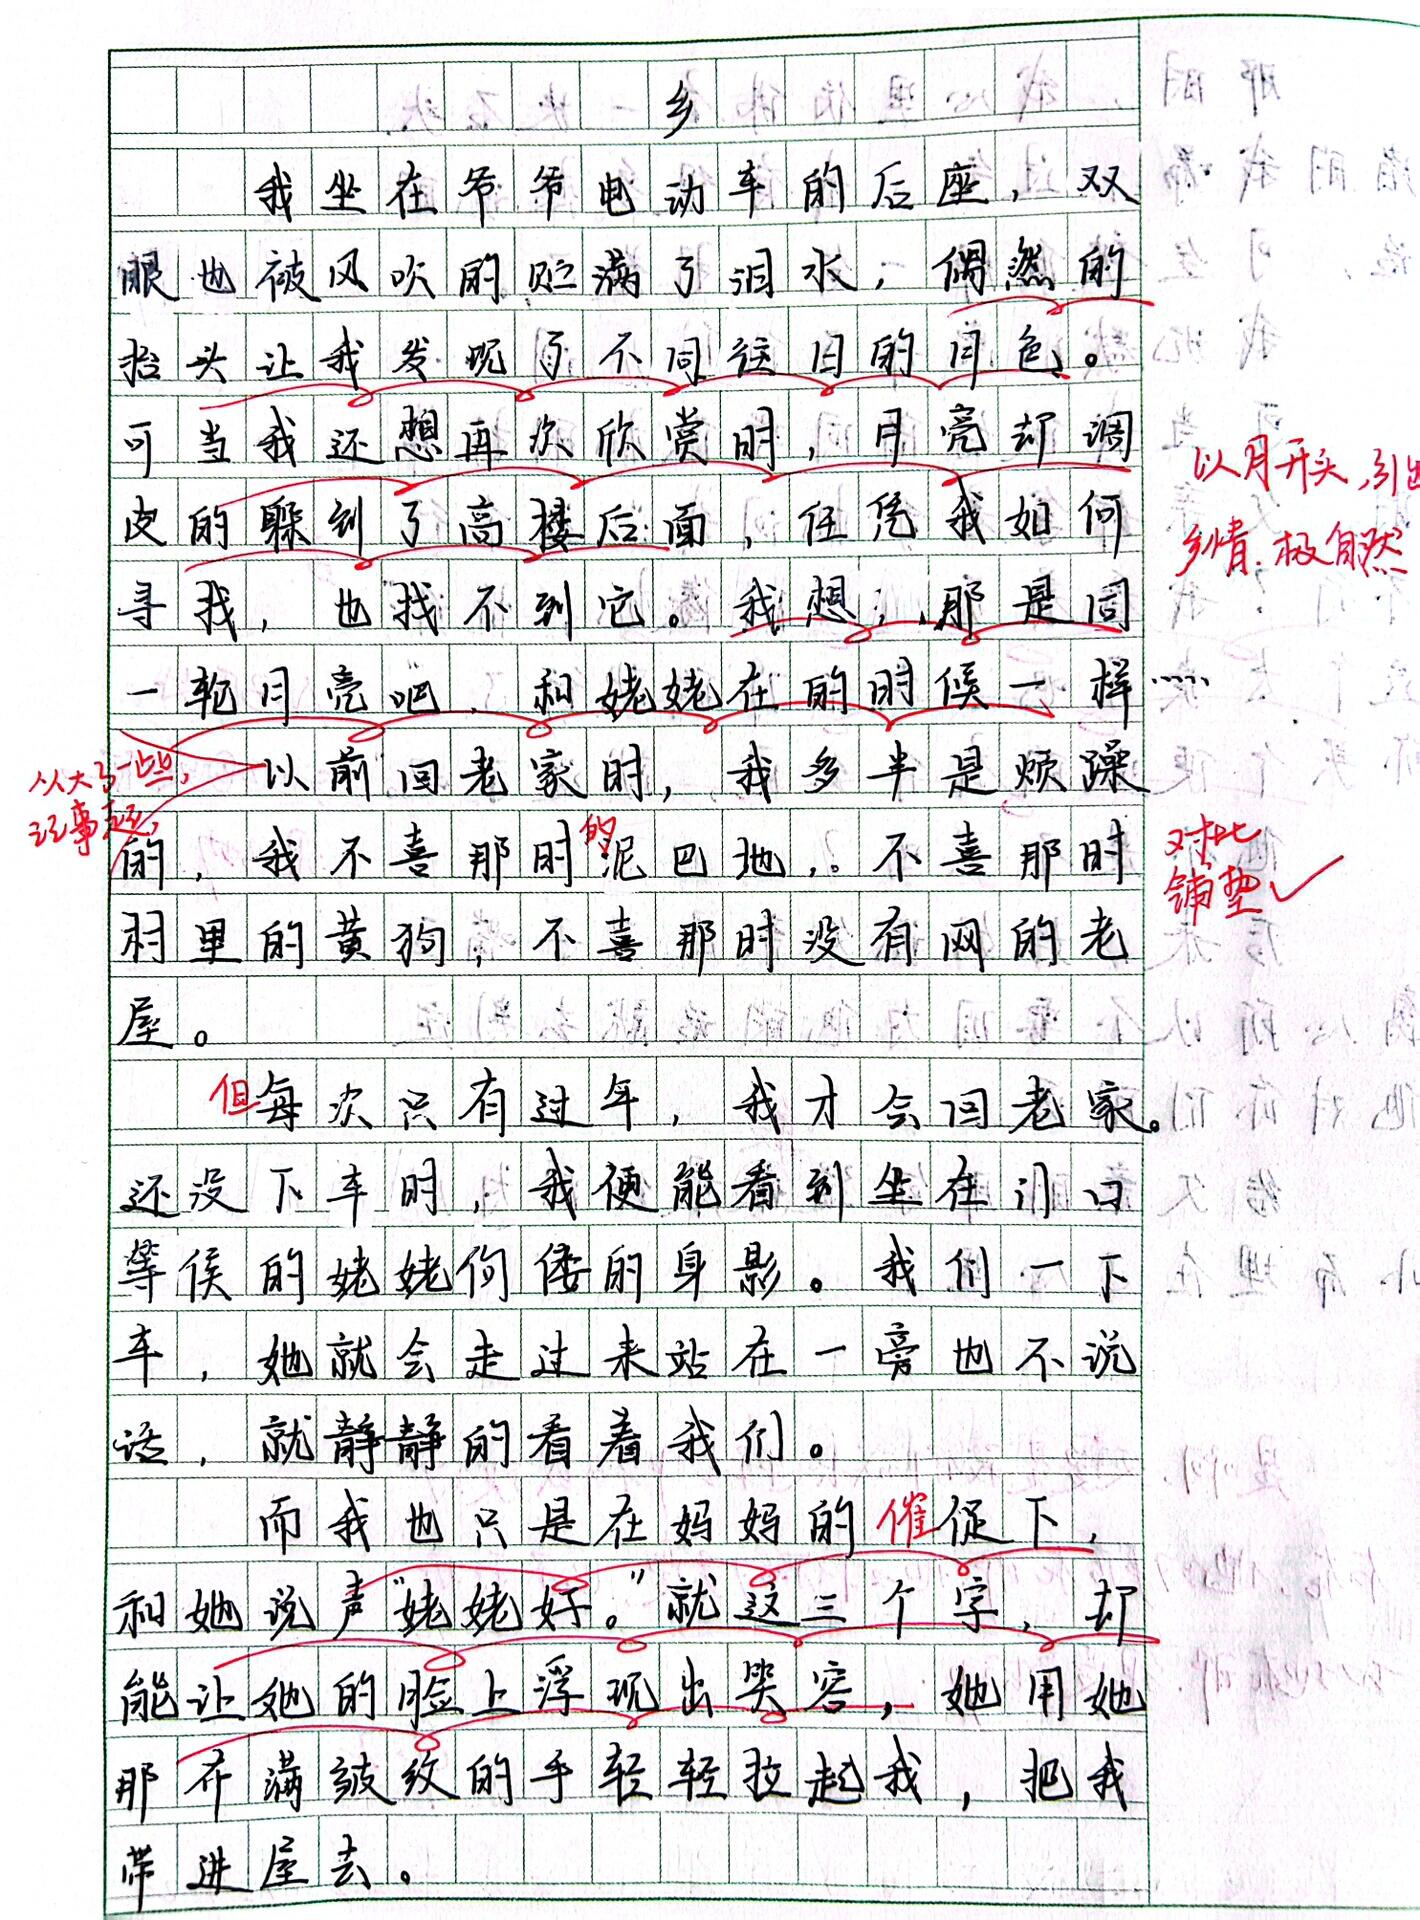 乡
我坐在爷爷电动车的后座，双
眼也被风吹的贮满了泪水，偶然的
抬头让我发现了不同往日的月色。
可当我还想再次欣赏时，月亮却调
皮的躲到了高楼后面，任凭我如何
以月开头，引出
乡情，极自然
寻找，也找不到它。我想，那是同
一轮月亮吧，和姥姥在的时候一样……
从大了一些，
记事起，
以前回老家时，我多半是烦躁
的，我不喜那时的泥巴地，不喜那时
对比
铺垫
村里的黄狗，不喜那时没有网的老
屋。
但每次只有过年，我才会回老家。
还没下车时，我便能看到坐在门口
等侯的姥姥佝偻的身影。我们一下
车，她就会走过来站在一旁也不说
话，就静静的看着我们。
而我也只是在妈妈的催促下，
和她说声“姥姥好。”就这三个字，却
能让她的脸上浮现出笑容，她用她
那布满皱纹的手轻轻拉起我，把我
带进屋去。